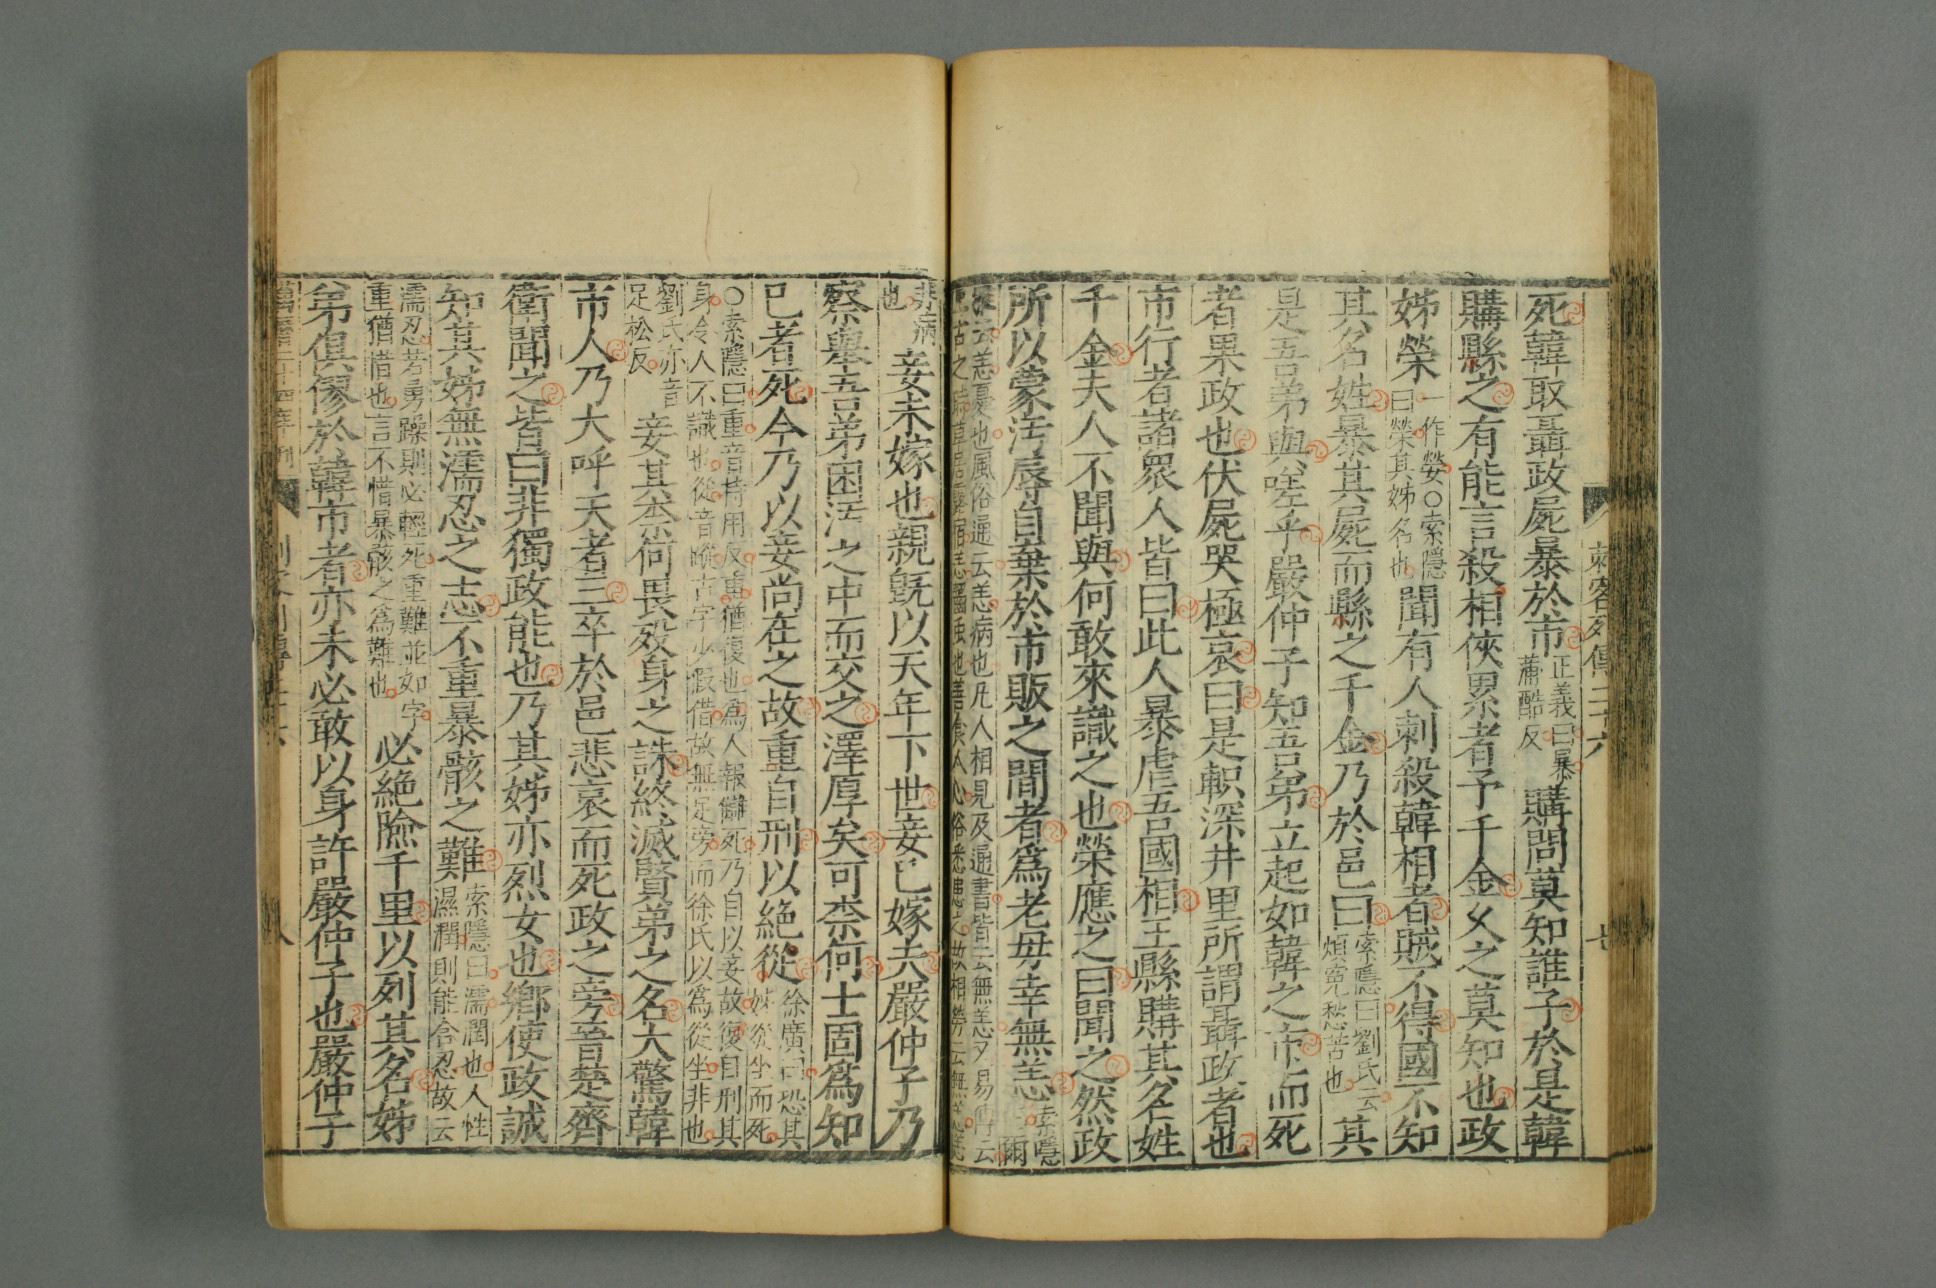 刺客列傳二十六
七
死韓取聶政屍暴於市正義曰暴蕭酷反購問莫知誰子於是韓
購縣之有能言殺相俠累者予千金乆之莫知也政
姊榮一作嫈○索隱曰榮其姊名也聞有人刺殺韓相者賊不得國不知
其名姓暴其屍而縣之千金乃於邑曰索隱曰劉氏云煩寃愁苦也其
是吾弟與嗟乎嚴仲子知吾弟立起如韓之市而死
者果政也伏屍哭極哀曰是軹深井里所謂聶政者也
市行者諸眾人皆曰此人暴虐吾國相王縣購其名姓
千金夫人不聞與何敢來識之也榮應之曰聞之然政
所以蒙汚辱自棄於市販之間者為老母幸無恙索隱爾
云恙憂也風俗通云恙病也凡人相見及通書皆云無恙又易傳云
古之時草居露宿恙齧蟲也善食人心俗悉患之故相勞云無恙恙
非病也妾未嫁也親旣以天年下世妾已嫁夫嚴仲子乃
察舉吾弟困汚之中而交之澤厚矣可柰何士固為知
已者死今乃以妾尚在之故重自刑以絕從徐廣曰恐其姊從坐而死
○索隱曰重音持用反重猶復也為人報讎死乃自以妾故復自刑其
身令人不識也從音蹤古字少假借故無定旁而徐氏以為從坐非也
劉氏亦音足松反妾其柰何畏歿身之誅終滅賢弟之名大驚韓
市人乃大呼天者三卒於邑悲哀而死政之旁晉楚齊
衛聞之皆曰非獨政能也乃其姊亦烈女也鄉使政誠
知其姊無濡忍之志不重暴骸之難索隱曰濡潤也人性濕潤則能含忍故云
濡忍若勇躁則必輕死重難並如字
重猶惜也言不惜暴骸之為難也必絕險千里以列其名姊
弟俱僇於韓市者亦未必敢以身許嚴仲子也嚴仲子
萬曆二十四年刊
刺客列傳二十六
八